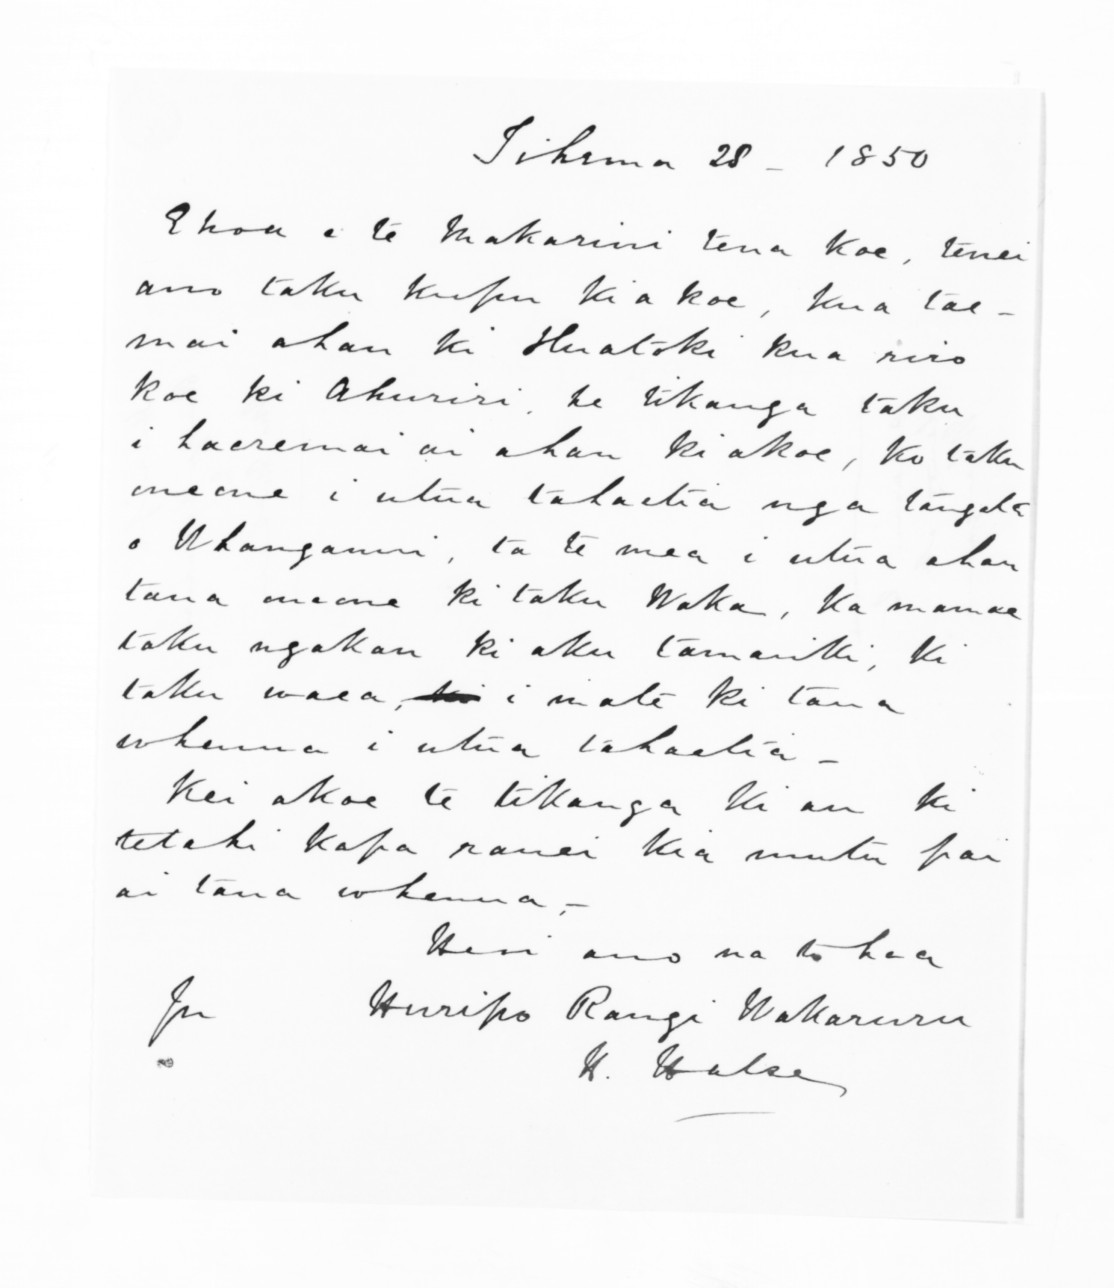 Tihema 28 - 1850
Ehoa e te Makarini tena koe, tenei
ano taku kupu ki a koe, kua tae-
mai ahau ki Huatoki kua riro
koe ki Ahuriri, he tikanga taku
i haeremai ai ahau ki akoe, ko taku
oneone i utua tahaetia nga tangata
o Whanganui, ta te mea i utua ahau
tana oneone ki taku Waka, Ka mamae
taku ngakau ki aku tamariki, ki
taku waea, i mate ki tana
whenua i utua tahaetia -
Kei akoe te tikanga ki au ki
tetahi kapa ranei kia mutu pai
ai tana whenua, -
Heri ano na to hoa
Huripo Rangi Wakaruru
H. Halse